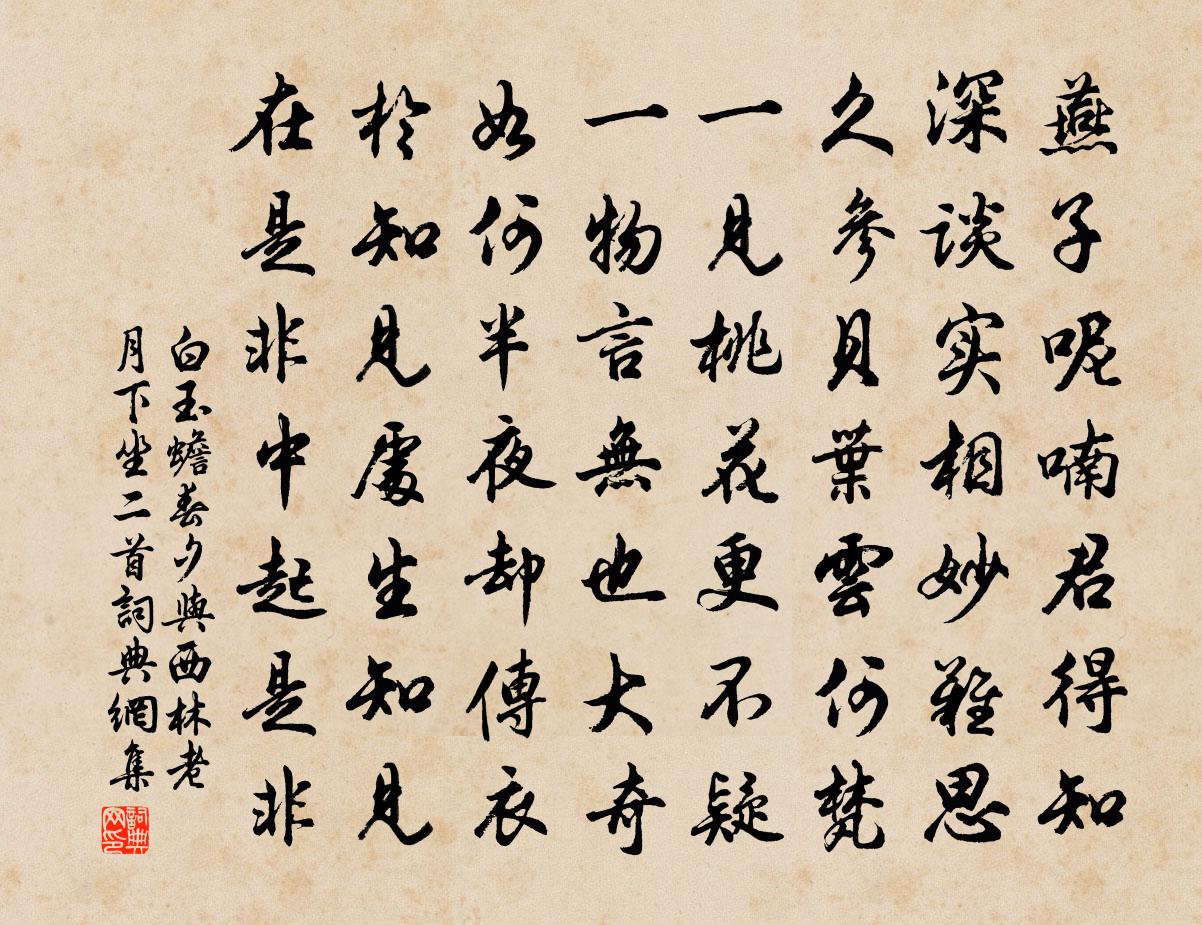 燕子呢喃君得知
深谈实相妙難思
久參貝葉雲何梵
一見桃花更不疑
一物言無也大奇
如何半夜却傳衣
於知見處生知見
在是非中起是非
白玉蟾春夕與西林老
月下坐二首詞典網集
詞典
网印